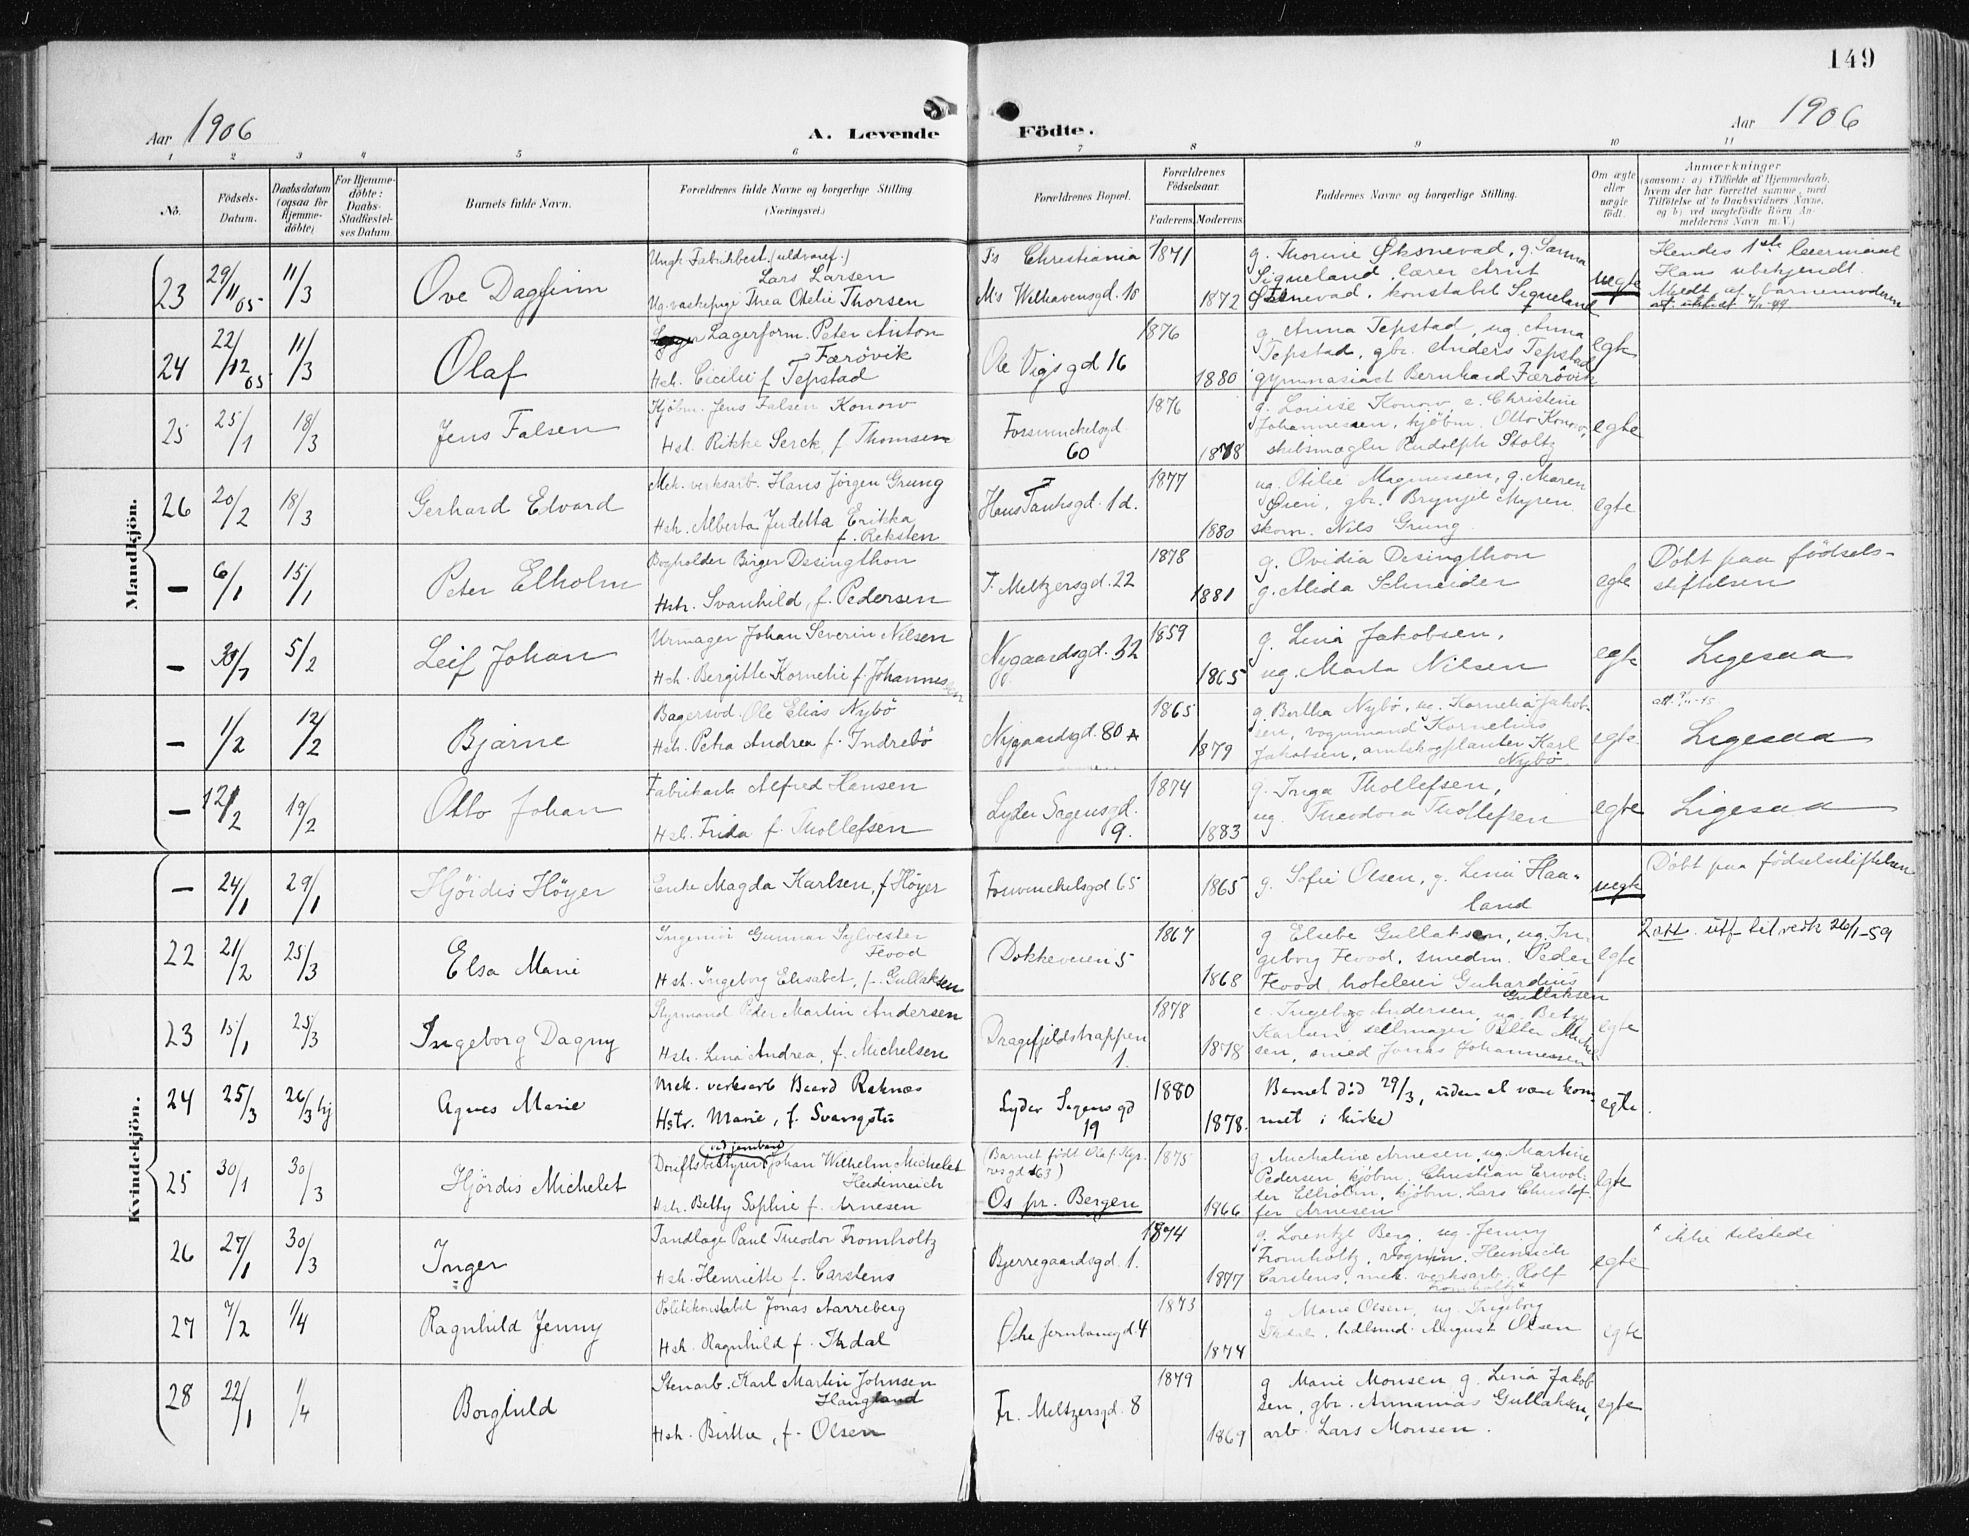 149
Aar 1906
A. Levende Födte.
Aar 1906
1 2 3 4 5 6 7 8 9 10 11
No.
Födsels-Datum.
Daabsdatum (ogsaa for Hjemme-döbte)
For Hjemme-döbte: Daabs-Stadfæstel-ses Datum.
Barnets fulde Navn.
Forældrenes fulde Navne og borgerlige Stilling.
(Næringsvei.)
Forældrenes Bopæl.
Forældrenes Födselsaar.
Faderens. Moderens.
Faddernes Navne og borgerlige Stilling.
Om ægte eller uægte født.
Anmærkninger
(saasom: a) i Tilfælde af Hjemmedaab,
hvem der har forrettet samme, med
Tilföielse af to Daabsvidners Navne,
og b) ved uægtefödte Börn An-
melderens Navn m. V.)
Mandkjön.
23 29/11 05 11/3 Ove Dagfinn
Ungk. Fabrikbest. (uldvaref.)
Lars Larsen
Ug. vaskepige Thea Otelie Thorsen
F's Christiania
M's Welhavensgd. 18
1871 1872
g. Thorine Øksnevad, g. Sanna
Sigueland, lærer Arnt
Øksnevad, konstabel Sigueland
uegte
Hendes 1ste leiermaal
Hans ubekjendt.
Meldt af barnemoderen
24 22/12 05 11/3 Olaf
Lagerform. Peter Anton
Færövik
Hst. Cicilie f. Tepstad
Ole Vigs gd 16
1876 1880
g. Anna Tepstad, ug. Anna
Tepstad, gbr. Anders Tepstad
gymnasiast Bernhard Færövik
egte
25 25/1 18/3 Jens Falsen
Kjöbm. Jens Falsen Konow
Hst. Rikke Serck, f. Thomsen
Fosswinckelsgd.
60
1876 1878
g. Louise Konow, e. Christine
Johannessen, kjöbm. Otto Konow,
skibsmægler Rudolph Stoltz
egte
26 20/2 18/3 Gerhard Edvard
Mek. verksarb. Hans Jörgen Grung
Hst. Alberta Judetta Erikka
f. Reksten
Hans Tanksgd. 1d.
1877 1880
ug. Otilie Magnussen, g. Maren
Öien, gbr. Brynjel Myren
skom. Nils Grung.
egte
— 6/1 15/1 Peter Elholm
Bogholder Birger Desingthon
Hstr. Svanhild, f. Pedersen
F. Meltzersgd. 22
1878 1881
g. Ovidia Desingthon
g. Alida Schneider
egte
Döbt paa födsels-
stiftelsen
— 5/2 Leif Johan
Urmager Johan Severin Nilsen
Hst. Bergitte Kornelie f. Johannessen
Nygaardsgd. 32
1859 1865
g. Lina Jakobsen,
ug. Marta Nilsen
egte
Ligesaa
— 1/2 12/2 Bjarne
Bagersvd. Ole Elias Nybö
Hst. Petra Andrea f. Indrebö
Nygaardsgd. 80 A
1865 1879
g. Bertha Nybö, ug. Kornelia Jakob-
sen, vognmand Kornelius
Jakobsen, amtskogplanter Karl
Nybö
egte
Ligesaa
— 12/2 19/2 Otto Johan
Fabrikarb. Alfred Hansen
Hst. Frida f. Thollefsen
Lyder Sagensgd.
9.
1874 1883
g. Inga Thollefsen,
ug. Theodora Thollefsen
egte
Ligesaa
Kvindekjön.
— 24/1 29/1 Hjördis Höyer
Enke Magda Karlsen, f. Höyer
Fosswinckelsgd 65
1865
g. Sofie Olsen, g. Lina Haa-
land
uegte
Döbt paa födselsstiftelsen
22 21/2 25/3 Elsa Marie
Ingeniör Gunnar Sylvester
Hood
Hst. Ingeborg Elisabet, f. Gullaksen
Dokkeveien 5
1867 1868
g. Elsebe Gullaksen, ug. In-
geborg Hood, smedm. Peder
Hood, hoteleier Gerhardius
Gullaksen
egte
2 att. utf til vedk 26/1-59
23 15/1 25/3 Ingeborg Dagny
Styrmand Peder Martin Andersen
Hst. Lina Andrea, f. Michelsen
Dragefjeldstrappen
1.
1878 1878
e. Ingeborg Andersen, ug. Betzy
Karlsen, seilmager Peter Michel-
sen, smed Jonas Johannessen
egte
24 25/3 26/3 hj Agnes Marie
Mek. verksarb Baard Raknæs
Hstr. Marie, f. Svangstu
Lyder Sagensgd
19
1880 1878.
Barnet död 29/3, uden at være kom-
met i kirke
egte.
25 30/1 30/3 Hjördis Michelet
ved jernban
Driftsbestyrer Johan Wilhelm Michelet
Heidenreich
Hst. Betty Sophie f. Arnesen
(Barnet født Olaf Kyr-
resgd 63)
Os pr. Bergen
1875 1866
g. Michaline Arnesen, ug. Martine
Pedersen, kjöbm. Christian
Ellholm, kjöbm. Lars Christof-
fer Arnesen
egte
26 27/1 30/3 Inger
Tandlæge Paul Theodor Fromholtz
Hst. Henriette f. Carstens
Bjerregaardsgd. 1.
1874 1877
g. Lorentze Berg, ug. Jenny
Fromholtz, vognm. Heinrich
Carstens, mek. verksarb. Rolf
Fromholtz *
egte
* ikke tilstede
27 7/2 1/4 Ragnhild Jenny
Politikonstabel Jonas Aarreberg
Hst. Ragnhild f. Ikdal
Østre Jernbanegd. 4
1873 1874
g. Marie Olsen, ug. Ingeborg
Ikdal, August Olsen
egte
28 22/1 1/4 Borghild
Stenarb. Karl Martin Johnsen
Haugland
Hst. Birthe, f. Olsen
Fr. Meltzersgd. 8
1879 1869
g. Marie Monsen g. Lina Jakob-
sen, gbr. Annanias Gullaksen,
arb. Lars Monsen.
egte